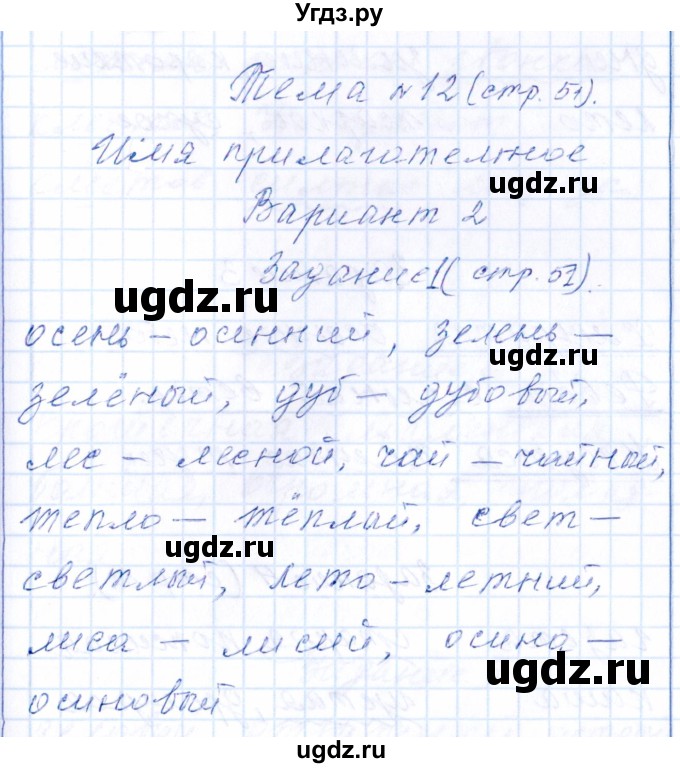 Угдз.ру
Тема №12 (стр. 51).
Имя прилагательное
ugdz.ru
Вариант 2
Задание1 (стр. 51).
ugdz.ru
осень – осинний, зелень –
ugdz.ru
зелёный, дуб – дубовый,
лес – лесной, чай – чайный,
тепло – тёплый, свет –
ugdz.ru
светлый, лето – летний,
лиса – лисий, осина –
ugdz.ru
осиновый
ugdz.ru